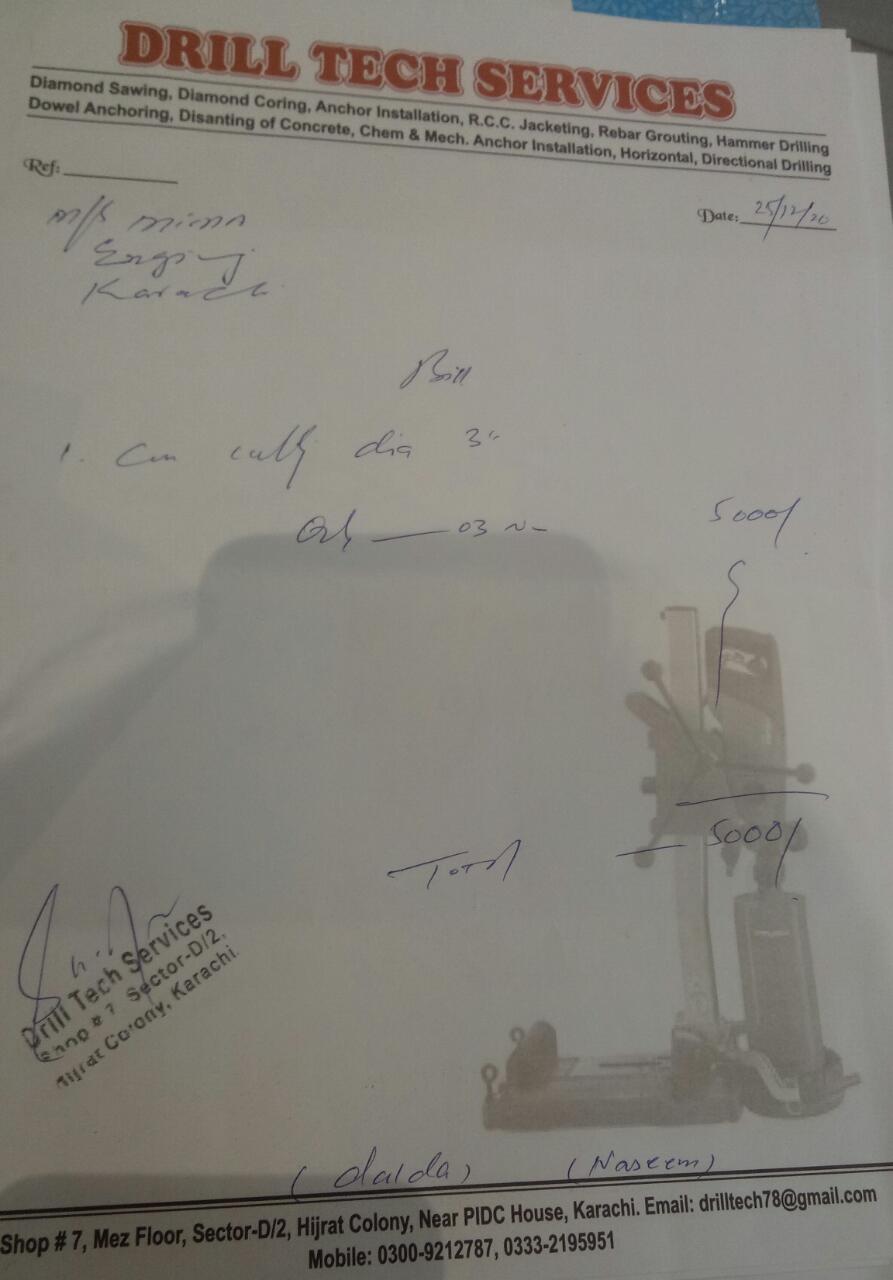 DRILL TECH SERVICES
Diamond Sawing, Diamond Coring, Anchor Installation, R.C.C. Jacketing, Rebar Grouting, Hammer Drilling
Dowel Anchoring, Disanting of Concrete, Chem & Mech. Anchor Installation, Horizontal, Directional Drilling
Ref:
Date: 25/12/20
M/s
Karachi
Bill
1. dia 3"
03 5000/
Total — 5000/
Drill Tech Services
Shop # 7 Sector-D/2,
Hijrat Colony, Karachi.
(dalda) (Naseem)
Shop # 7, Mez Floor, Sector-D/2, Hijrat Colony, Near PIDC House, Karachi. Email: drilltech78@gmail.com
Mobile: 0300-9212787, 0333-2195951